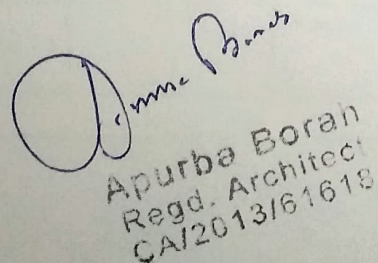 Apurba Borah
Regd. Architect
CA/2013/61618